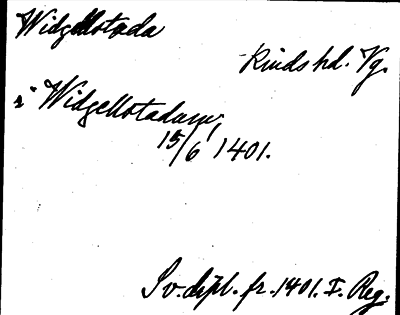 Widgellotada
Kinds hd. Vg.
i Widgellotadum,
15/6 1401.
Sv. dipl. fr. 1401. I. Reg.